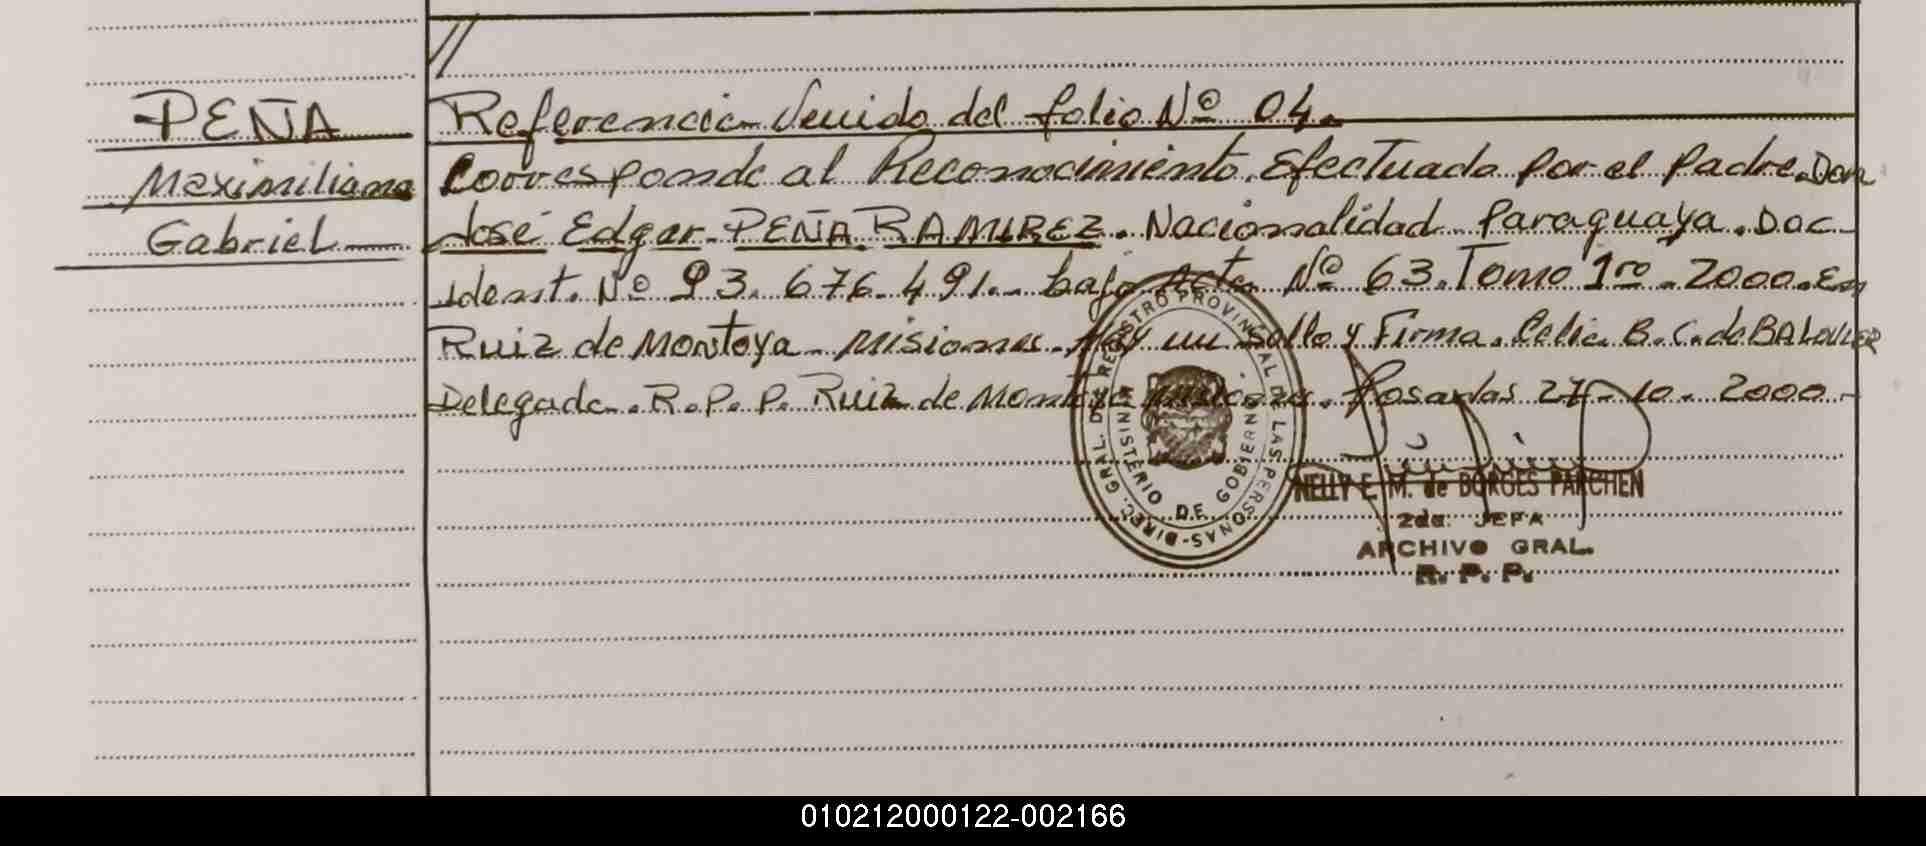 //
PEÑA
Maximiliano
Gabriel
Referencia Venido del folio Nº 04.
Corresponde al Reconocimiento. Efectuado por el Padre. Don
José Edgar PEÑA RAMIREZ. Nacionalidad Paraguaya. Doc
Ident. Nº 93.676.491.- bajo Acta Nº 63. Tomo 1ro - 2000. En
Ruiz de Montoya - Misiones. Hay un Sello y Firma. Celia B. C. de
Delegada. R. P. P. Ruiz de Montoya Misiones. Posadas 27-10-2000-
DIREC. GRAL. DE REGISTRO PROVINCIAL DE LAS PERSONAS
MINISTERIO DE GOBIERNO
NELLY E. M. de BORGES PARCHEN
2da. JEFA
ARCHIVO GRAL.
R. P. P.
010212000122-002166